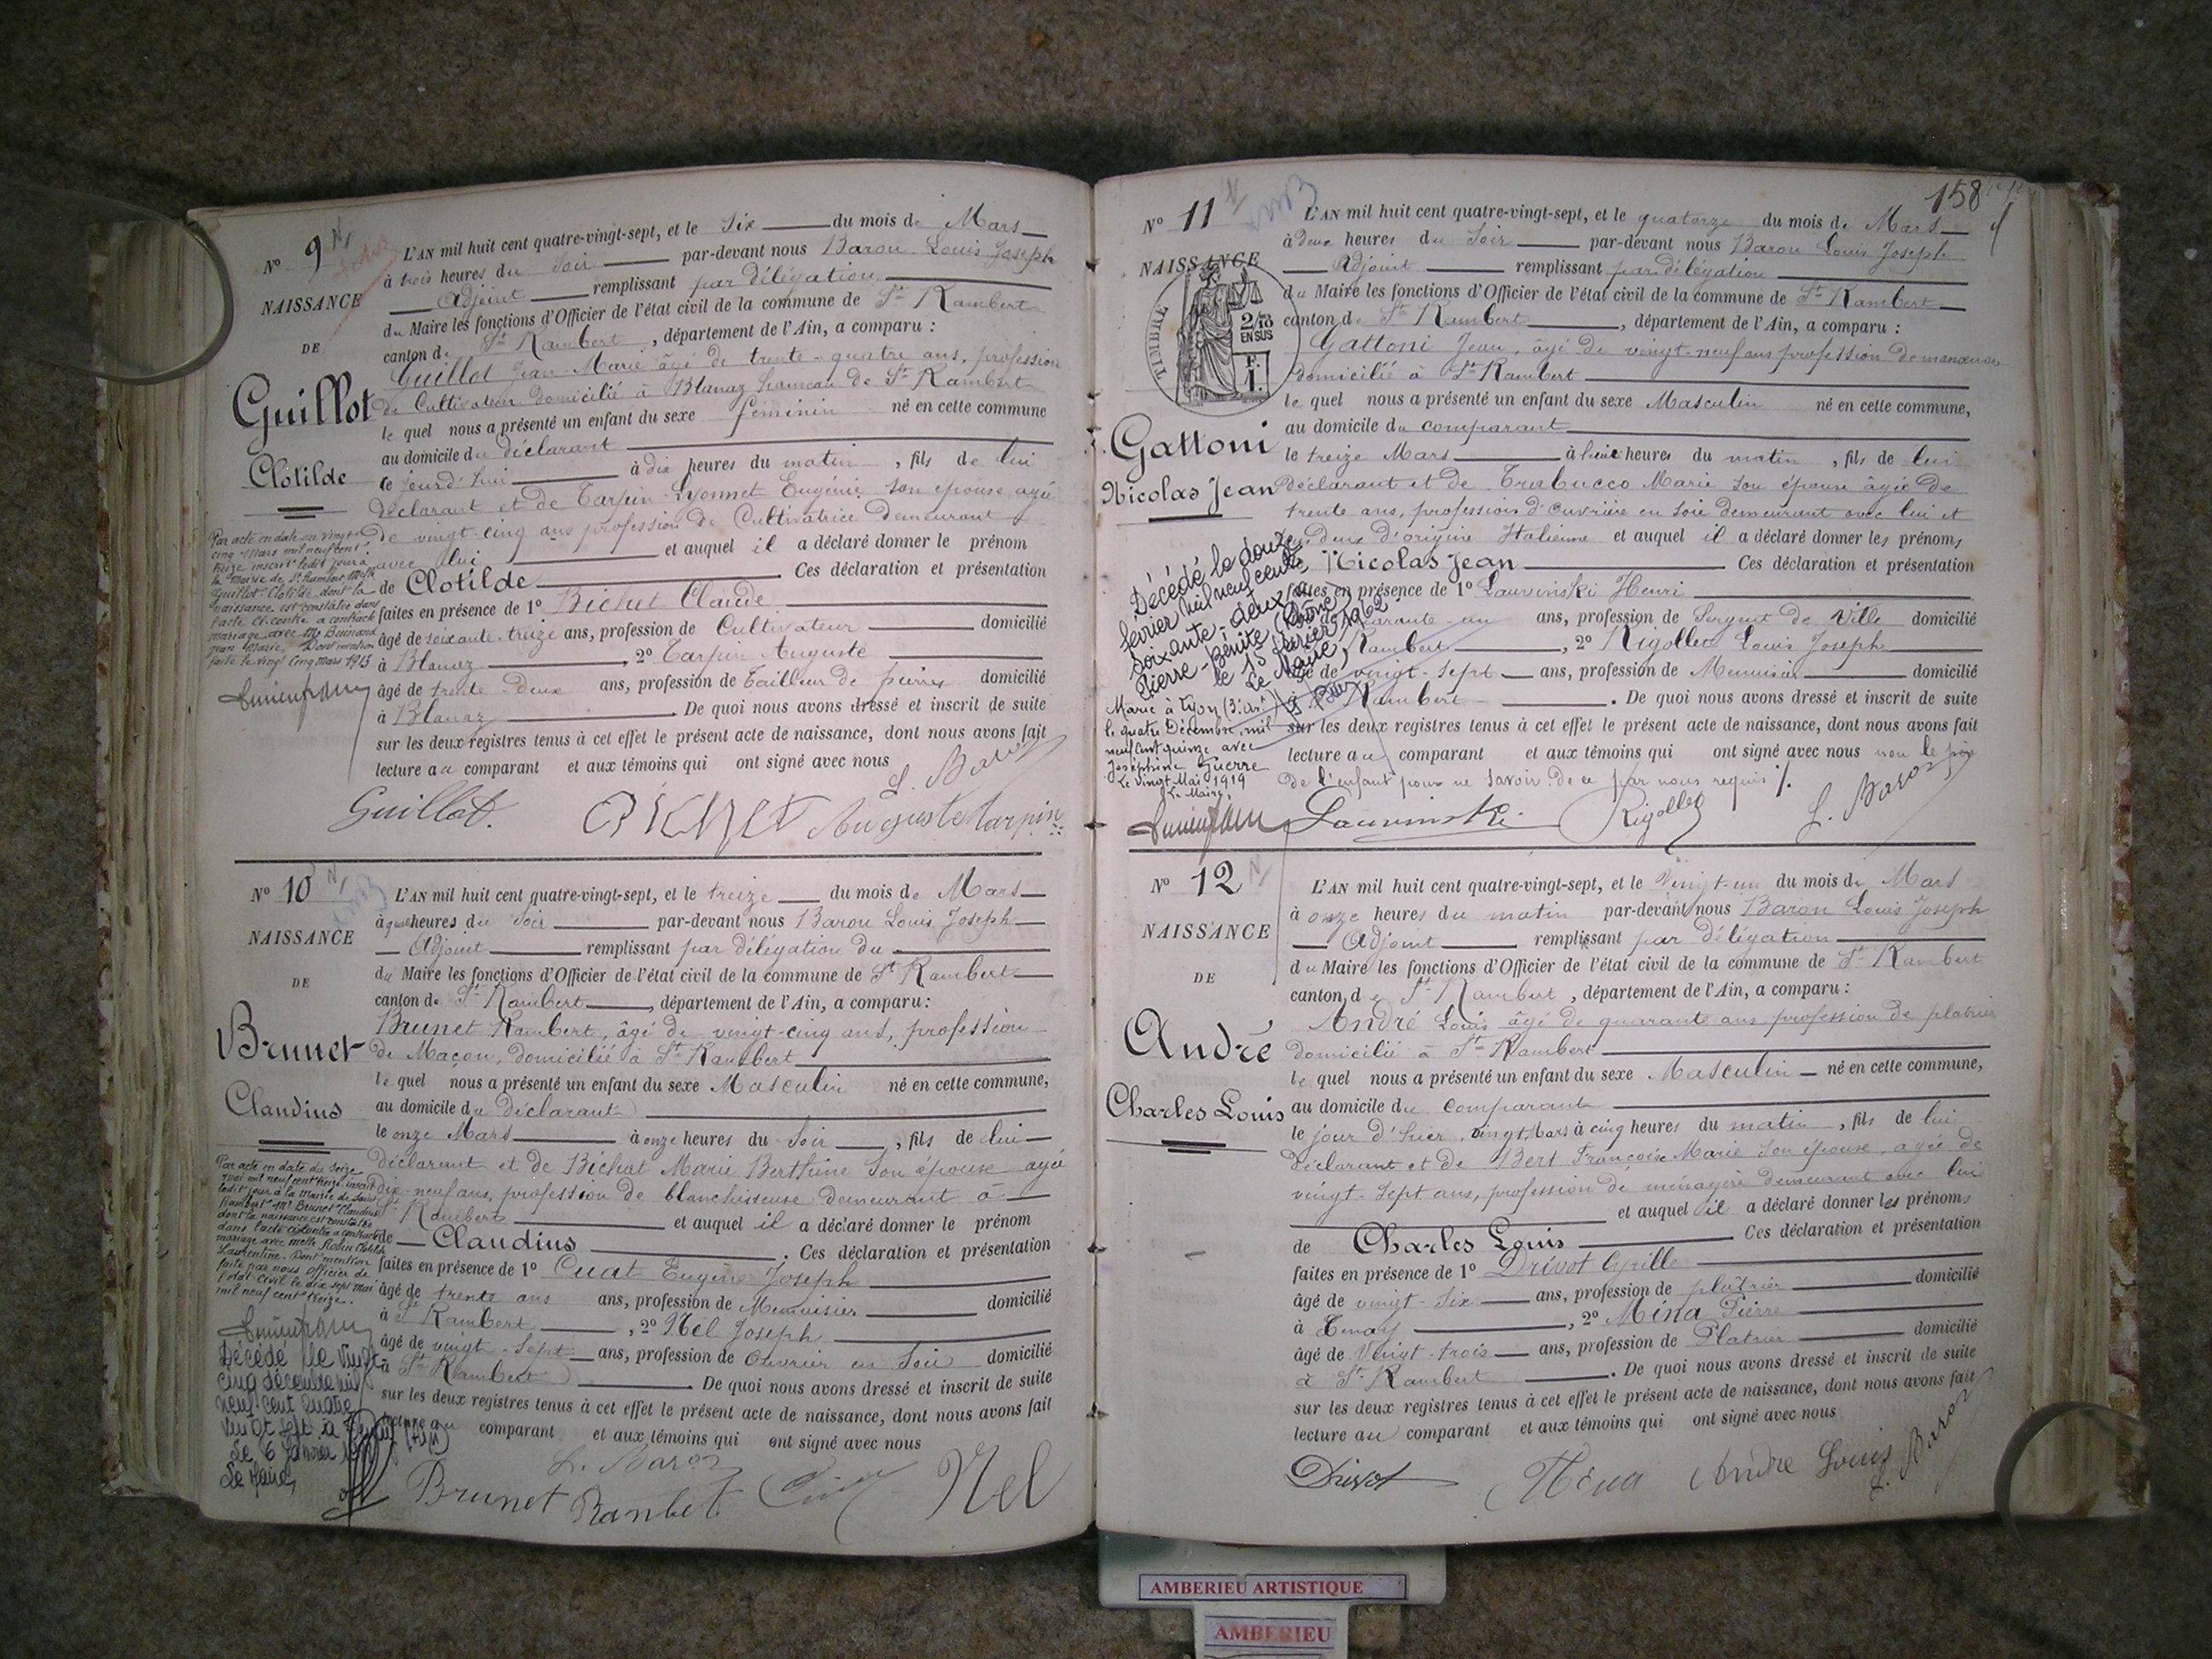 Nº 9
NAISSANCE
DE
Guillot
Clotilde
L'AN mil huit cent quatre-vingt-sept, et le Six du mois de Mars
à trois heures du Soir par-devant nous Baron Louis Joseph
Adjoint remplissant par délégation
du Maire les fonctions d'Officier de l'état civil de la commune de St Rambert
canton de St Rambert, département de l'Ain, a comparu :
Guillot Jean Marie âgé de trente-quatre ans, profession
de Cultivateur domicilié à Blanaz hameau de St Rambert
le quel nous a présenté un enfant du sexe féminin né en cette commune
au domicile du déclarant
ce jourd'hui à dix heures du matin, fils de lui
déclarant et de Tarpin-Lyonnet Eugénie son épouse agée
de vingt-cinq ans profession de Cultivatrice demeurant
avec lui et auquel il a déclaré donner le prénom
de Clotilde Ces déclaration et présentation
faites en présence de 1º Bichat Claude
âgé de soixante-treize ans, profession de Cultivateur domicilié
à Blanaz, 2º Tarpin Auguste
âgé de trente-deux ans, profession de Tailleur de pierres domicilié
à Blanaz. De quoi nous avons dressé et inscrit de suite
sur les deux registres tenus à cet effet le présent acte de naissance, dont nous avons fait
lecture au comparant et aux témoins qui ont signé avec nous
Par acte en date du vingt
cinq Mars mil neuf cent
treize inscrit ledit jour à
la Mairie de St Rambert Melle
Guillot Clotilde dont la
naissance est constatée dans
l'acte ci-contre a contracté
mariage avec Mr Bonnand
Jean Marie. Dont mention
faite le vingt cinq mars 1913
L. Baron
Guillot. Auguste tarpin
Nº 10
NAISSANCE
DE
Brunet
Claudius
L'AN mil huit cent quatre-vingt-sept, et le treize du mois de Mars
à heures du Soir par-devant nous Baron Louis Joseph
Adjoint remplissant par délégation du
du Maire les fonctions d'Officier de l'état civil de la commune de St Rambert
canton de St Rambert, département de l'Ain, a comparu :
Brunet Rambert, âgé de vingt-cinq ans, profession
de Maçon, domicilié à St Rambert
le quel nous a présenté un enfant du sexe Masculin né en cette commune,
au domicile du déclarant
le onze Mars à onze heures du Soir, fils de lui
déclarant et de Bichat Marie Berthine son épouse agée
dix-neuf ans, profession de blanchisseuse demeurant à
St Rambert et auquel il a déclaré donner le prénom
de Claudius. Ces déclaration et présentation
faites en présence de 1º Cuat Eugène Joseph
âgé de trente ans ans, profession de Menuisier domicilié
à St Rambert, 2º Nel Joseph
âgé de vingt-sept ans, profession de Ouvrier en Soie domicilié
à St Rambert. De quoi nous avons dressé et inscrit de suite
sur les deux registres tenus à cet effet le présent acte de naissance, dont nous avons fait
lecture au comparant et aux témoins qui ont signé avec nous
Par acte en date du seize
mai mil neuf cent treize inscrit
ledit jour à la Mairie de Saint
Rambert Mr Brunet Claudius
dont la naissance est constatée
dans l'acte ci-contre a contracté
mariage avec Melle Robin Clotilde
Laurentine. Dont mention
faite par nous officier de
l'état civil le dix sept mai
mil neuf cent treize.
Décédé le vingt
cinq décembre mil
neuf cent quatre
vingt sept à (Ain)
Le 6 Janvier
Le Maire,
L. Baron
Brunet Rambert Nel
158
Nº 11
NAISSANCE
TIMBRE
2/10
EN SUS
F.
1.
Gattoni
Nicolas Jean
L'AN mil huit cent quatre-vingt-sept, et le quatorze du mois de Mars
à deux heures du Soir par-devant nous Baron Louis Joseph
Adjoint remplissant par délégation
du Maire les fonctions d'Officier de l'état civil de la commune de St Rambert
canton de St Rambert, département de l'Ain, a comparu :
Gattoni Jean, âgé de vingt-neuf ans profession de manœuvre
domicilié à St Rambert
le quel nous a présenté un enfant du sexe Masculin né en cette commune,
au domicile du comparant
le treize Mars à huit heures du matin, fils de lui
déclarant et de Trabucco Marie son épouse âgée de
trente ans, profession d'ouvrière en soie demeurant avec lui et
deux d'origine Italienne et auquel il a déclaré donner les prénoms
Nicolas Jean Ces déclaration et présentation
faites en présence de 1º Lauvinski Henri
quarante-un ans, profession de Sergent de Ville domicilié
Rambert, 2º Rigollet Louis Joseph
âgé de vingt-sept ans, profession de Menuisier domicilié
Rambert. De quoi nous avons dressé et inscrit de suite
sur les deux registres tenus à cet effet le présent acte de naissance, dont nous avons fait
lecture au comparant et aux témoins qui ont signé avec nous non le père
de l'enfant pour ne savoir de ce par nous requis ./.
Décédé le douze
février mil neuf cent
soixante-deux à
Pierre-Bénite (Rhône)
le 15 février 1962
Le Maire,
Marié à Lyon (3e arrt)
le quatre Décembre mil
neuf cent quinze avec
Joséphine Guerre
Le Vingt Mai 1919
Le Maire,
Lauvinski Rigollet L. Baron
Nº 12
NAISSANCE
DE
André
Charles Louis
L'AN mil huit cent quatre-vingt-sept, et le Vingt-un du mois de Mars
à onze heures du matin par-devant nous Baron Louis Joseph
Adjoint remplissant par délégation
du Maire les fonctions d'Officier de l'état civil de la commune de St Rambert
canton de St Rambert, département de l'Ain, a comparu :
André Louis âgé de quarante ans profession de platrier
domicilié à St Rambert
le quel nous a présenté un enfant du sexe Masculin né en cette commune,
au domicile du comparant
le jour d'hier, vingt Mars à cinq heures du matin, fils de lui
déclarant et de Bert Françoise Marie son épouse, agée de
vingt-sept ans, profession de ménagère demeurant avec lui
et auquel il a déclaré donner les prénoms
de Charles Louis Ces déclaration et présentation
faites en présence de 1º Drivot Cyrille
âgé de vingt-six ans, profession de platrier domicilié
à Tenay, 2º Mina Pierre
âgé de Vingt-trois ans, profession de Platrier domicilié
à St Rambert. De quoi nous avons dressé et inscrit de suite
sur les deux registres tenus à cet effet le présent acte de naissance, dont nous avons fait
lecture au comparant et aux témoins qui ont signé avec nous
Drivot Mina André Louis L. Baron
AMBERIEU ARTISTIQUE
AMBERIEU